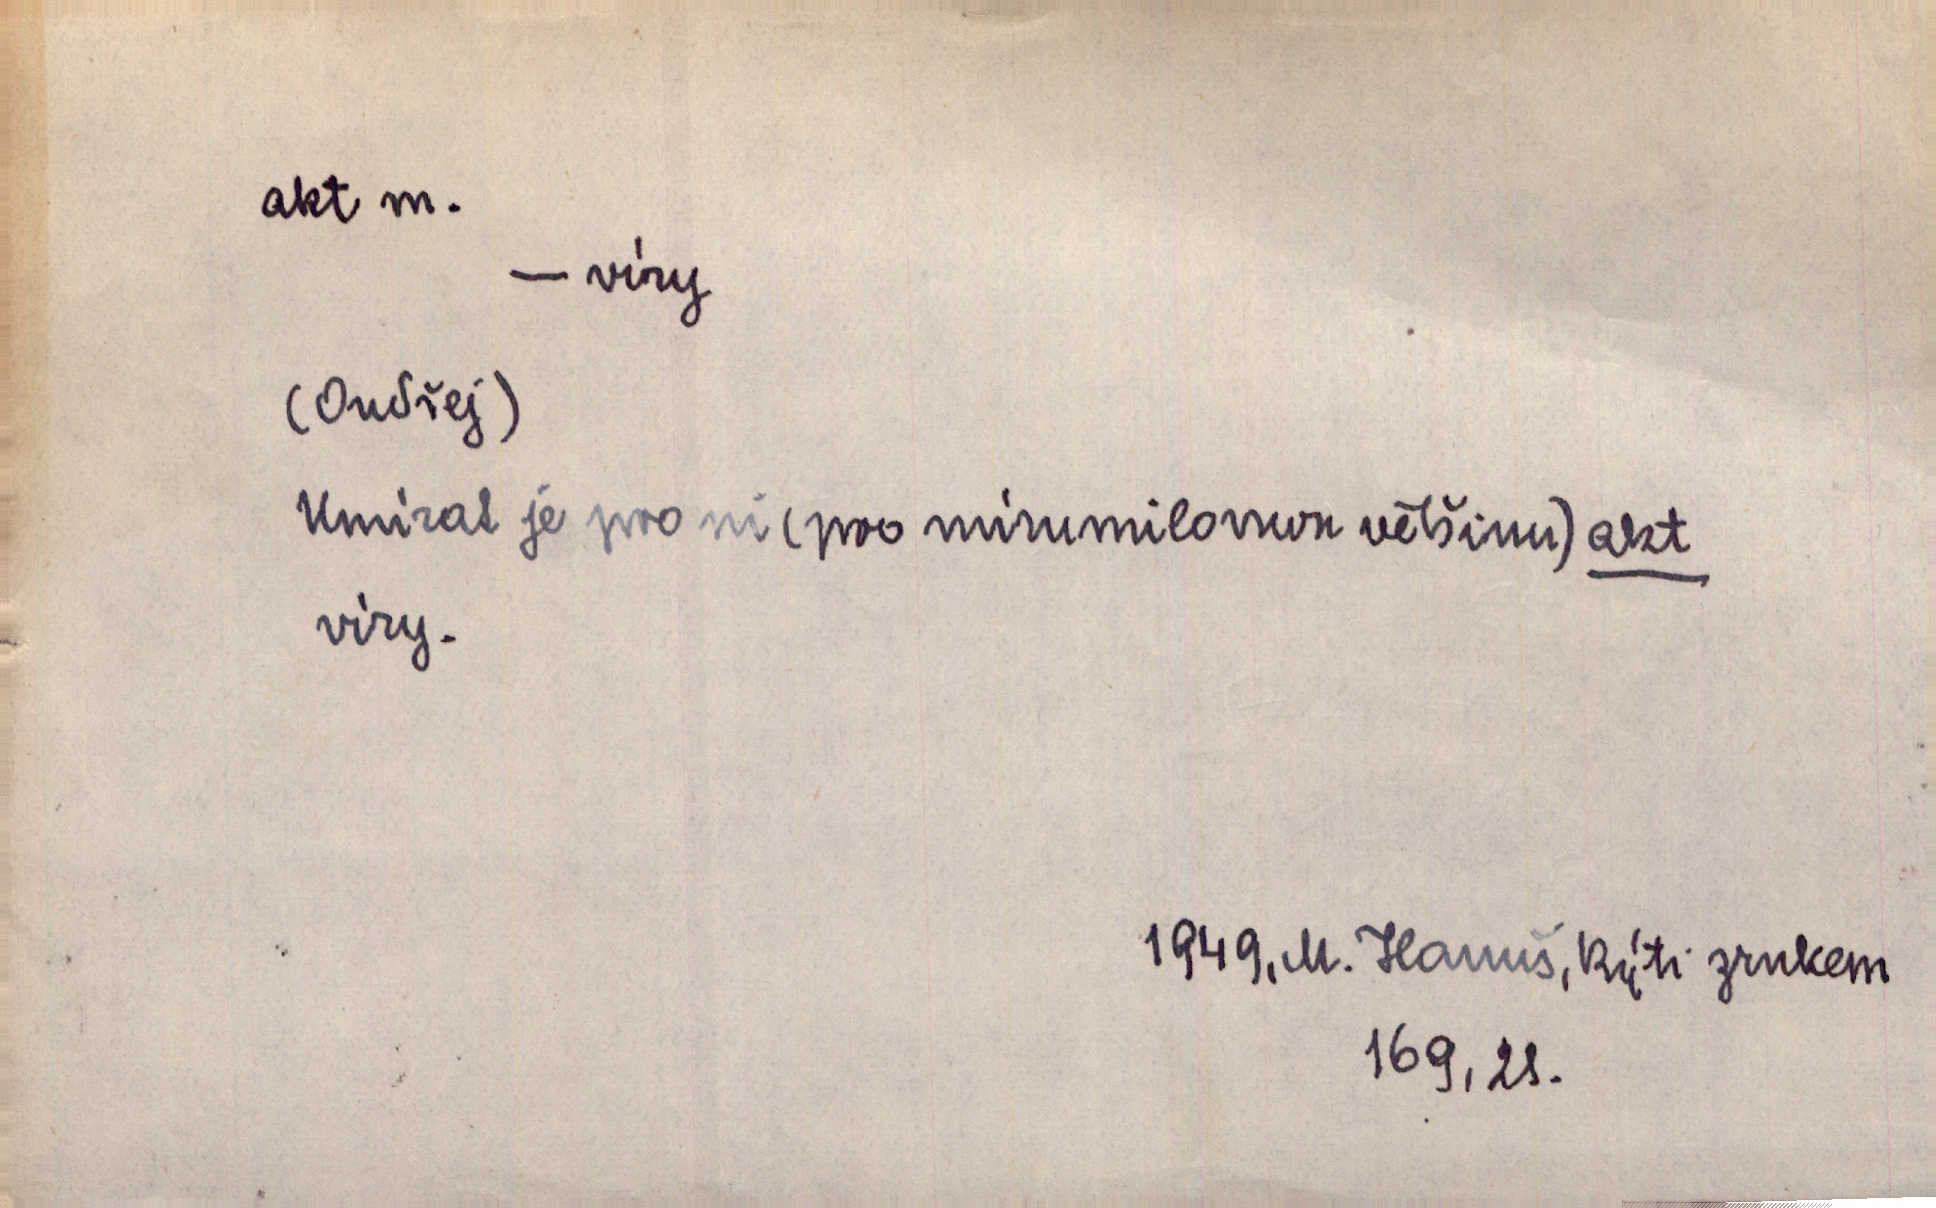 akt m.
— víry
(Ondřej)
Umírat je pro ni (pro mírumilovnou většinu) akt
víry.
1949, M. Hanuš, Býti zrnkem
169, 28.